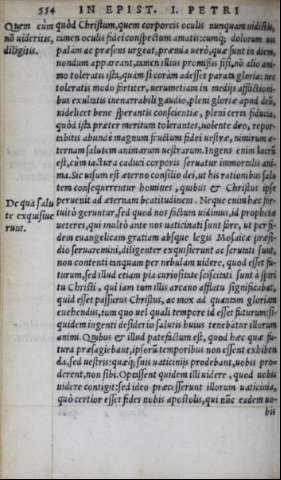 554 IN EPIST. I. PETRI
Quem cùm
nō uideritis,
diligitis.
quòd Christum, quem corporeis oculis nunquam uidistis,
tamen oculis fidei conspectum amatis: cumq; dolorum uis
palàm ac præsens urgeat, præmia uerò, quæ sunt in diem,
nondum appareant, tamen illius promissis fisi, nō alio ani-
mo toleratis ista, quàm si coràm adesset parata gloria: nec
toleratis modo fortiter, uerumetiam in medijs afflictioni-
bus exultatis inenarrabili gaudio, pleni gloriæ apud deū,
uidelicet bene sperantis conscientiæ, pleni certa fiducia,
quòd ista præter meritum tolerantes, uolente deo, repor-
tabitis abunde magnum fructum fidei uestræ, nimirum æ-
ternam salutem animarum uestrarum. Ingens enim lucrū
est, cùm iactura caduci corporis seruatur immortalis ani-
De qua salu
te exquisiue
runt.
ma. Sic uisum est æterno consilio dei, ut his rationibus salu
tem consequerentur homines, quibus & Christus ipse
peruenit ad æternam beatitudinem. Neque enim hæc for-
tuitò geruntur, sed quod nos factum uidimus, id prophetæ
ueteres, qui multò ante nos uaticinati sunt fore, ut per fi-
dem euangelicam gratiam absque legis Mosaicæ præsi-
dio seruaremini, diligenter exquisierunt ac scrutati sunt,
non contenti tanquam per nebulam uidere, quod esset fu-
turum, sed illud etiam pia curiositate sciscitati sunt à spiri
tu Christi, qui iam tum illis arcano afflatu significabat,
quid esset passurus Christus, ac mox ad quantam gloriam
euehendus, tum quo uel quali tempore id esset futurum: si-
quidem ingenti desiderio salutis huius tenebātur illorum
animi. Quibus & illud patefactum est, quod hæc quæ fu-
tura præsagiebant, ipsorū temporibus non essent exhiben
da, sed uestris: quæq; suis uaticinijs prodebant, uobis pro-
derent, non sibi. Optassent quidem illi uidere, quod uobis
uidere contigit: sed ideo præcesserunt illorum uaticinia,
quò certior esset fides nobis apostolis, qui nūc eadem uo-
bis